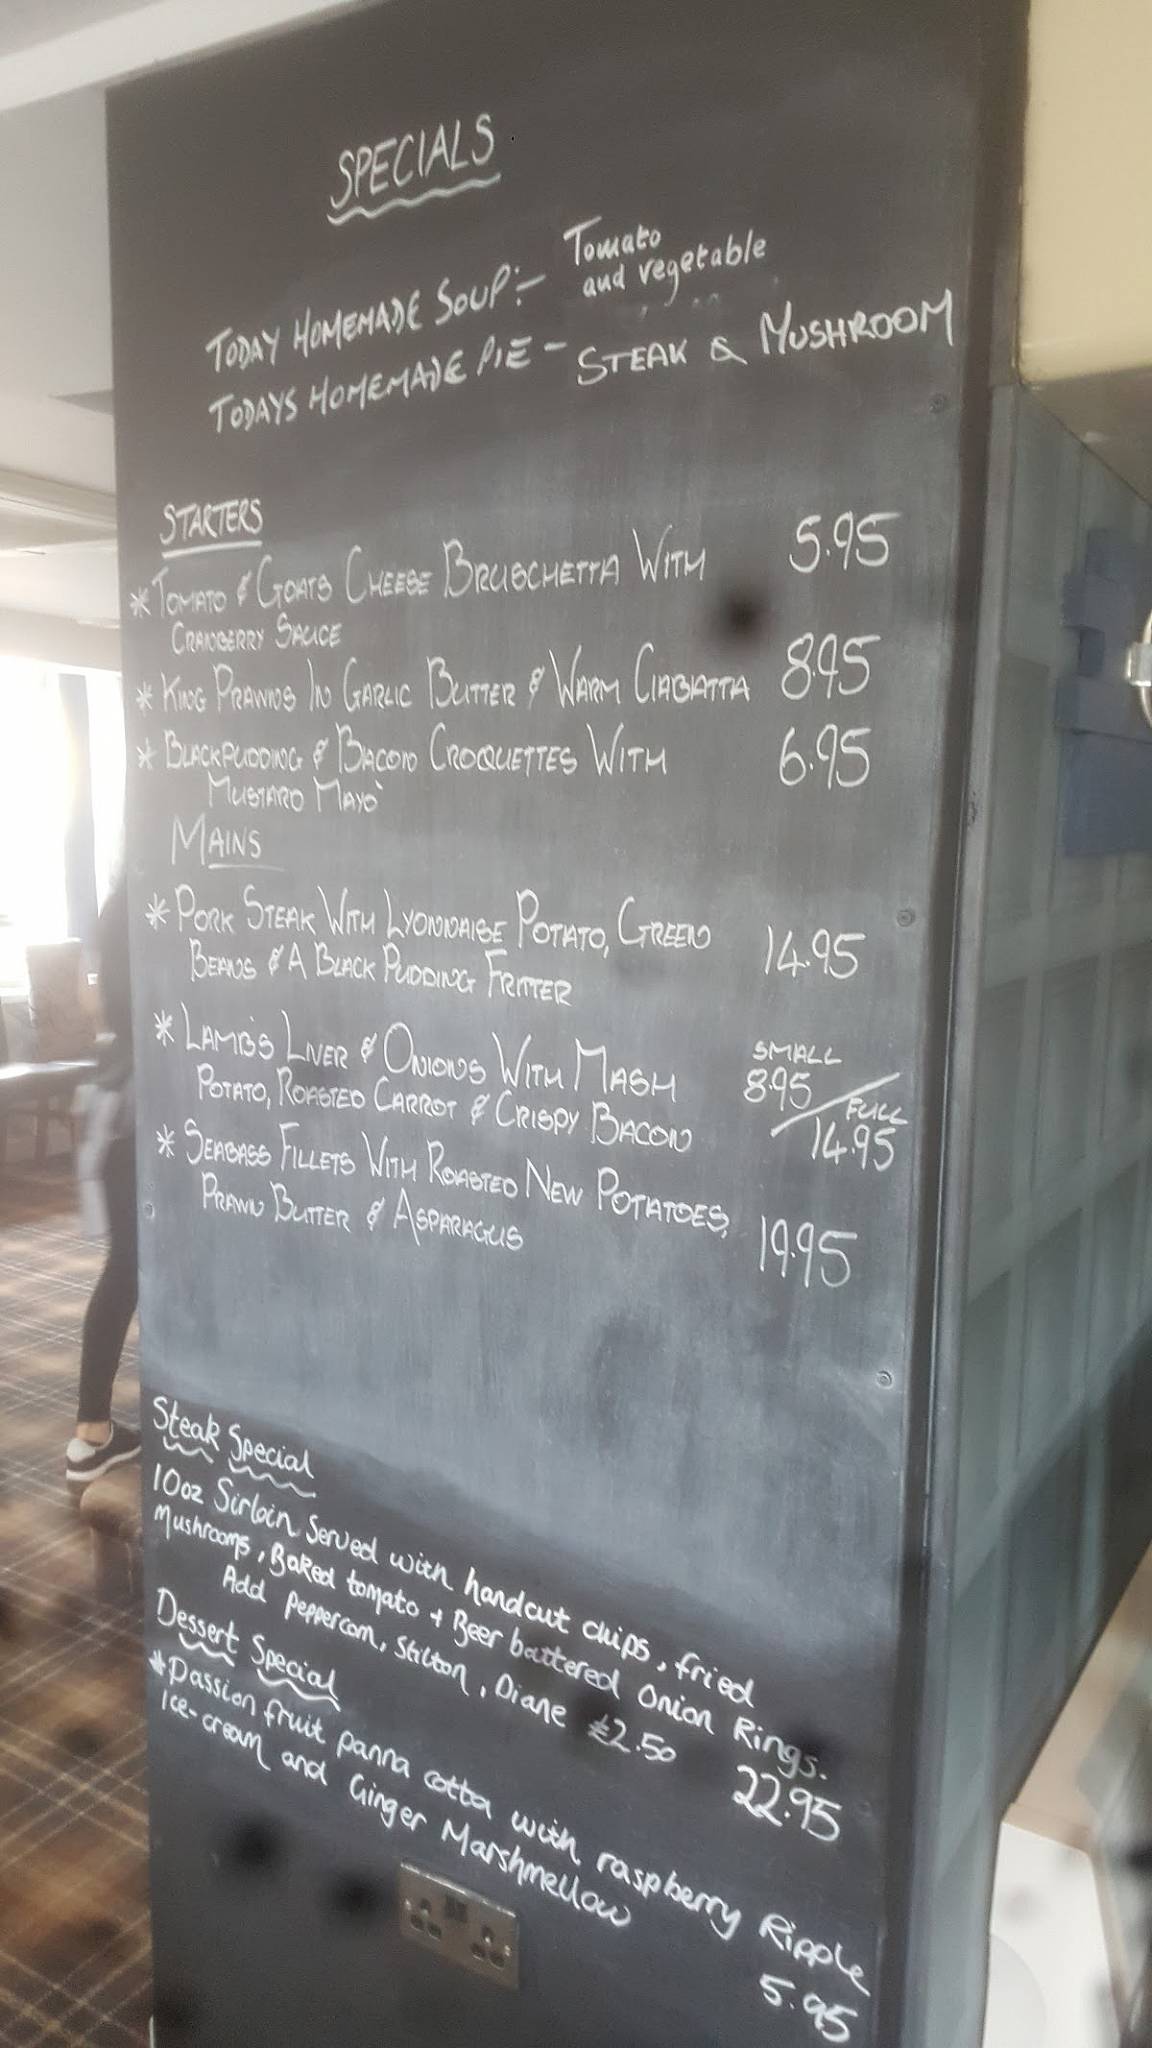 SPECIALS
TODAY HOMEMADE SOUP:- Tomato
and vegetable
TODAYS HOMEMADE PIE - STEAK & MUSHROOM
STARTERS
* TOMATO & GOATS CHEESE BRUSCHETTA WITH 5.95
CRANBERRY SAUCE
* KING PRAWNS IN GARLIC BUTTER & WARM CIABATTA 8.95
* BLACKPUDDING & BACON CROQUETTES WITH 6.95
MUSTARD MAYO'
MAINS
* PORK STEAK WITH LYONNAISE POTATO, GREEN 14.95
BEANS & A BLACK PUDDING FRITTER
* LAMB'S LIVER & ONIONS WITH MASH SMALL 8.95 / FULL 14.95
POTATO, ROASTED CARROT & CRISPY BACON
* SEABASS FILLETS WITH ROASTED NEW POTATOES,
PRAWN BUTTER & ASPARAGUS 19.95
Steak Special
10oz Sirloin Served with handcut chips, fried
Mushrooms, Baked tomato + Beer battered Onion Rings.
Add Peppercorn, Stilton, Diane £2.50 22.95
Dessert Special
*Passion fruit panna cotta with raspberry Ripple
Ice-cream and Ginger Marshmellow 5.95